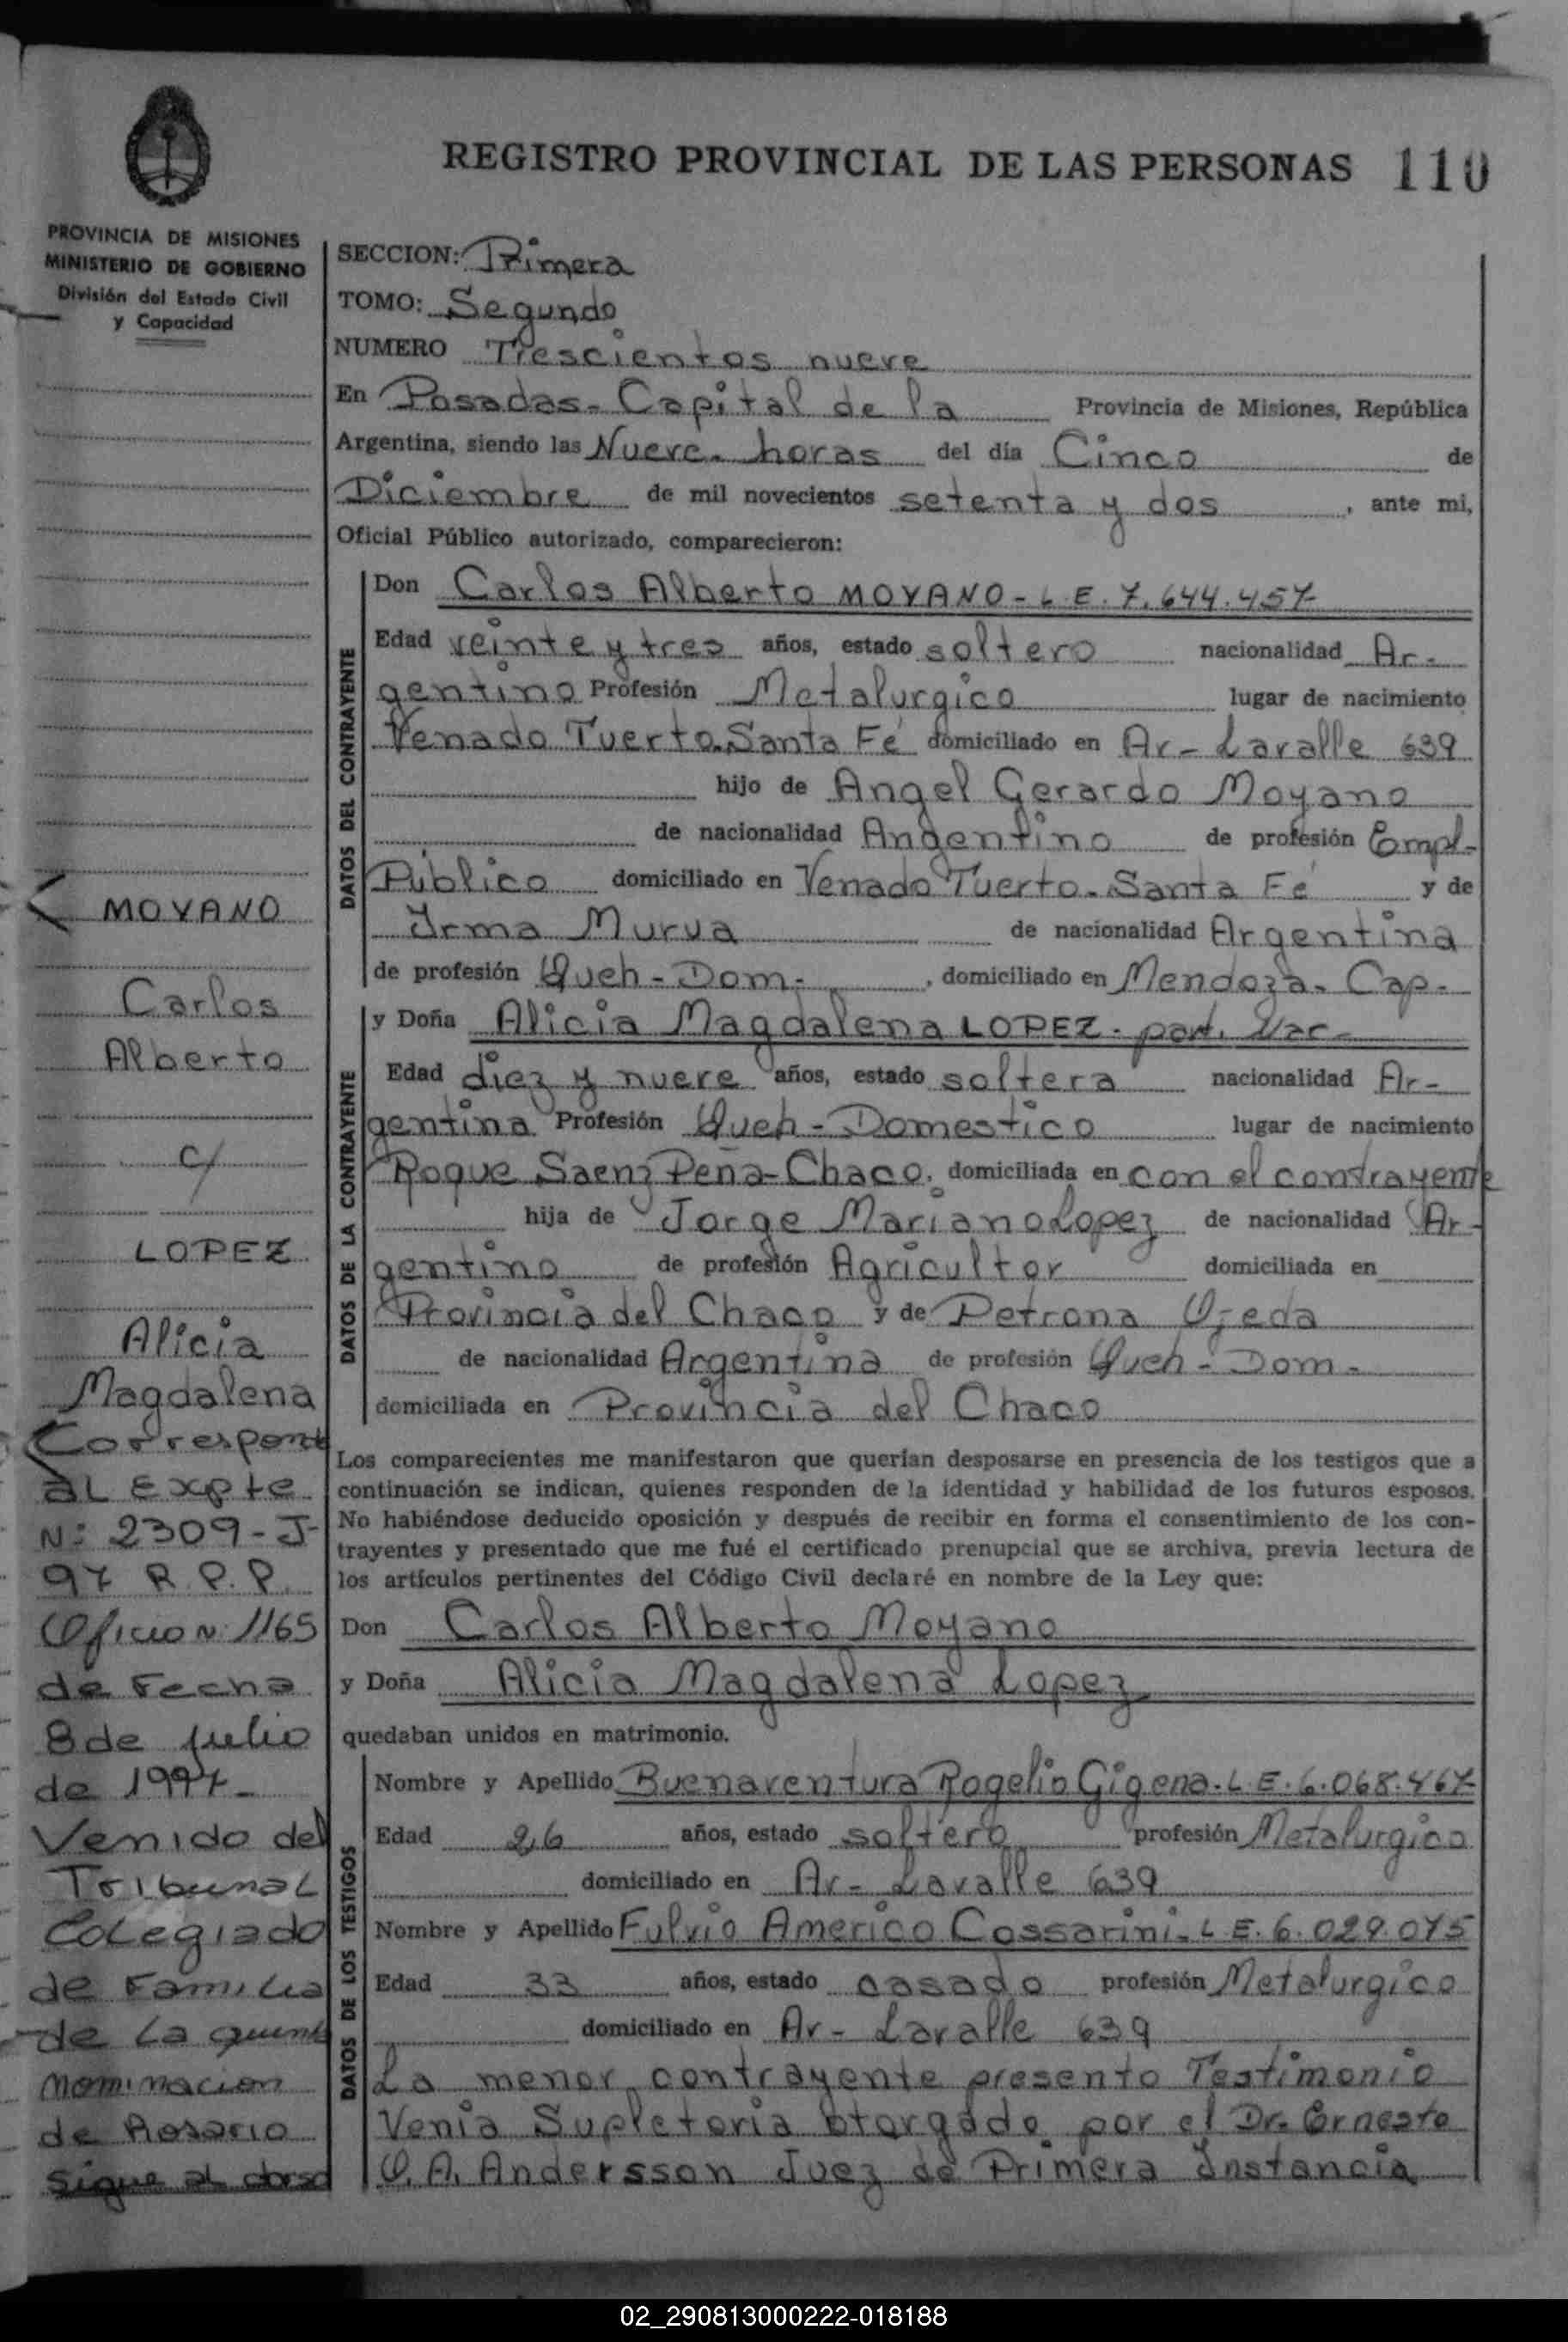 REGISTRO PROVINCIAL DE LAS PERSONAS 110
PROVINCIA DE MISIONES
MINISTERIO DE GOBIERNO
División del Estado Civil
y Capacidad
SECCION: Primera
TOMO: Segundo
NUMERO Trescientos nueve
En Posadas - Capital de la Provincia de Misiones, República
Argentina, siendo las Nueve - horas del día Cinco de
Diciembre de mil novecientos setenta y dos, ante mi,
Oficial Público autorizado, comparecieron:
DATOS DEL CONTRAYENTE
Don Carlos Alberto MOYANO - L.E. 7.644.457
Edad veinte y tres años, estado soltero nacionalidad Ar-
gentino Profesión Metalurgico lugar de nacimiento
Venado Tuerto-Santa Fé domiciliado en Av- Lavalle 639
hijo de Angel Gerardo Moyano
de nacionalidad Argentino de profesión Empl-
Público domiciliado en Venado Tuerto-Santa Fé y de
Irma Murua de nacionalidad Argentina
de profesión Queh-Dom-, domiciliado en Mendoza- Cap-
DATOS DE LA CONTRAYENTE
y Doña Alicia Magdalena LOPEZ-
Edad diez y nueve años, estado soltera nacionalidad Ar-
gentina Profesión Queh-Domestico lugar de nacimiento
Roque Saenz Peña-Chaco. domiciliada en con el contrayente
hija de Jorge Mariano Lopez de nacionalidad Ar-
gentino de profesión Agricultor domiciliada en
Provincia del Chaco y de Petrona Ojeda
de nacionalidad Argentina de profesión Queh-Dom-
domiciliada en Provincia del Chaco
Los comparecientes me manifestaron que querían desposarse en presencia de los testigos que a
continuación se indican, quienes responden de la identidad y habilidad de los futuros esposos.
No habiéndose deducido oposición y después de recibir en forma el consentimiento de los con-
trayentes y presentado que me fué el certificado prenupcial que se archiva, previa lectura de
los artículos pertinentes del Código Civil declaré en nombre de la Ley que:
Don Carlos Alberto Moyano
y Doña Alicia Magdalena Lopez
quedaban unidos en matrimonio.
DATOS DE LOS TESTIGOS
Nombre y Apellido Buenaventura Rogelio Gigena-L.E.6.068.467
Edad 26 años, estado soltero profesión Metalurgico
domiciliado en Av- Lavalle 639
Nombre y Apellido Fulvio Americo Cossarini-L.E.6.029.075
Edad 33 años, estado casado profesión Metalurgico
domiciliado en Av- Lavalle 639
La menor contrayente presento Testimonio
Venia Supletoria otorgado por el Dr. Ernesto
O.A. Andersson Juez de Primera Instancia
MOYANO
Carlos
Alberto
c/
LOPEZ
Alicia
Magdalena
Corresponde
al Expte
N: 2309-J-
97 R.P.P.
Oficio N: 1165
de Fecha
8 de julio
de 1997-
Venido del
Tribunal
Colegiado
de Familia
de La quinta
nominacion
de Rosario
sigue al dorso
02_290813000222-018188